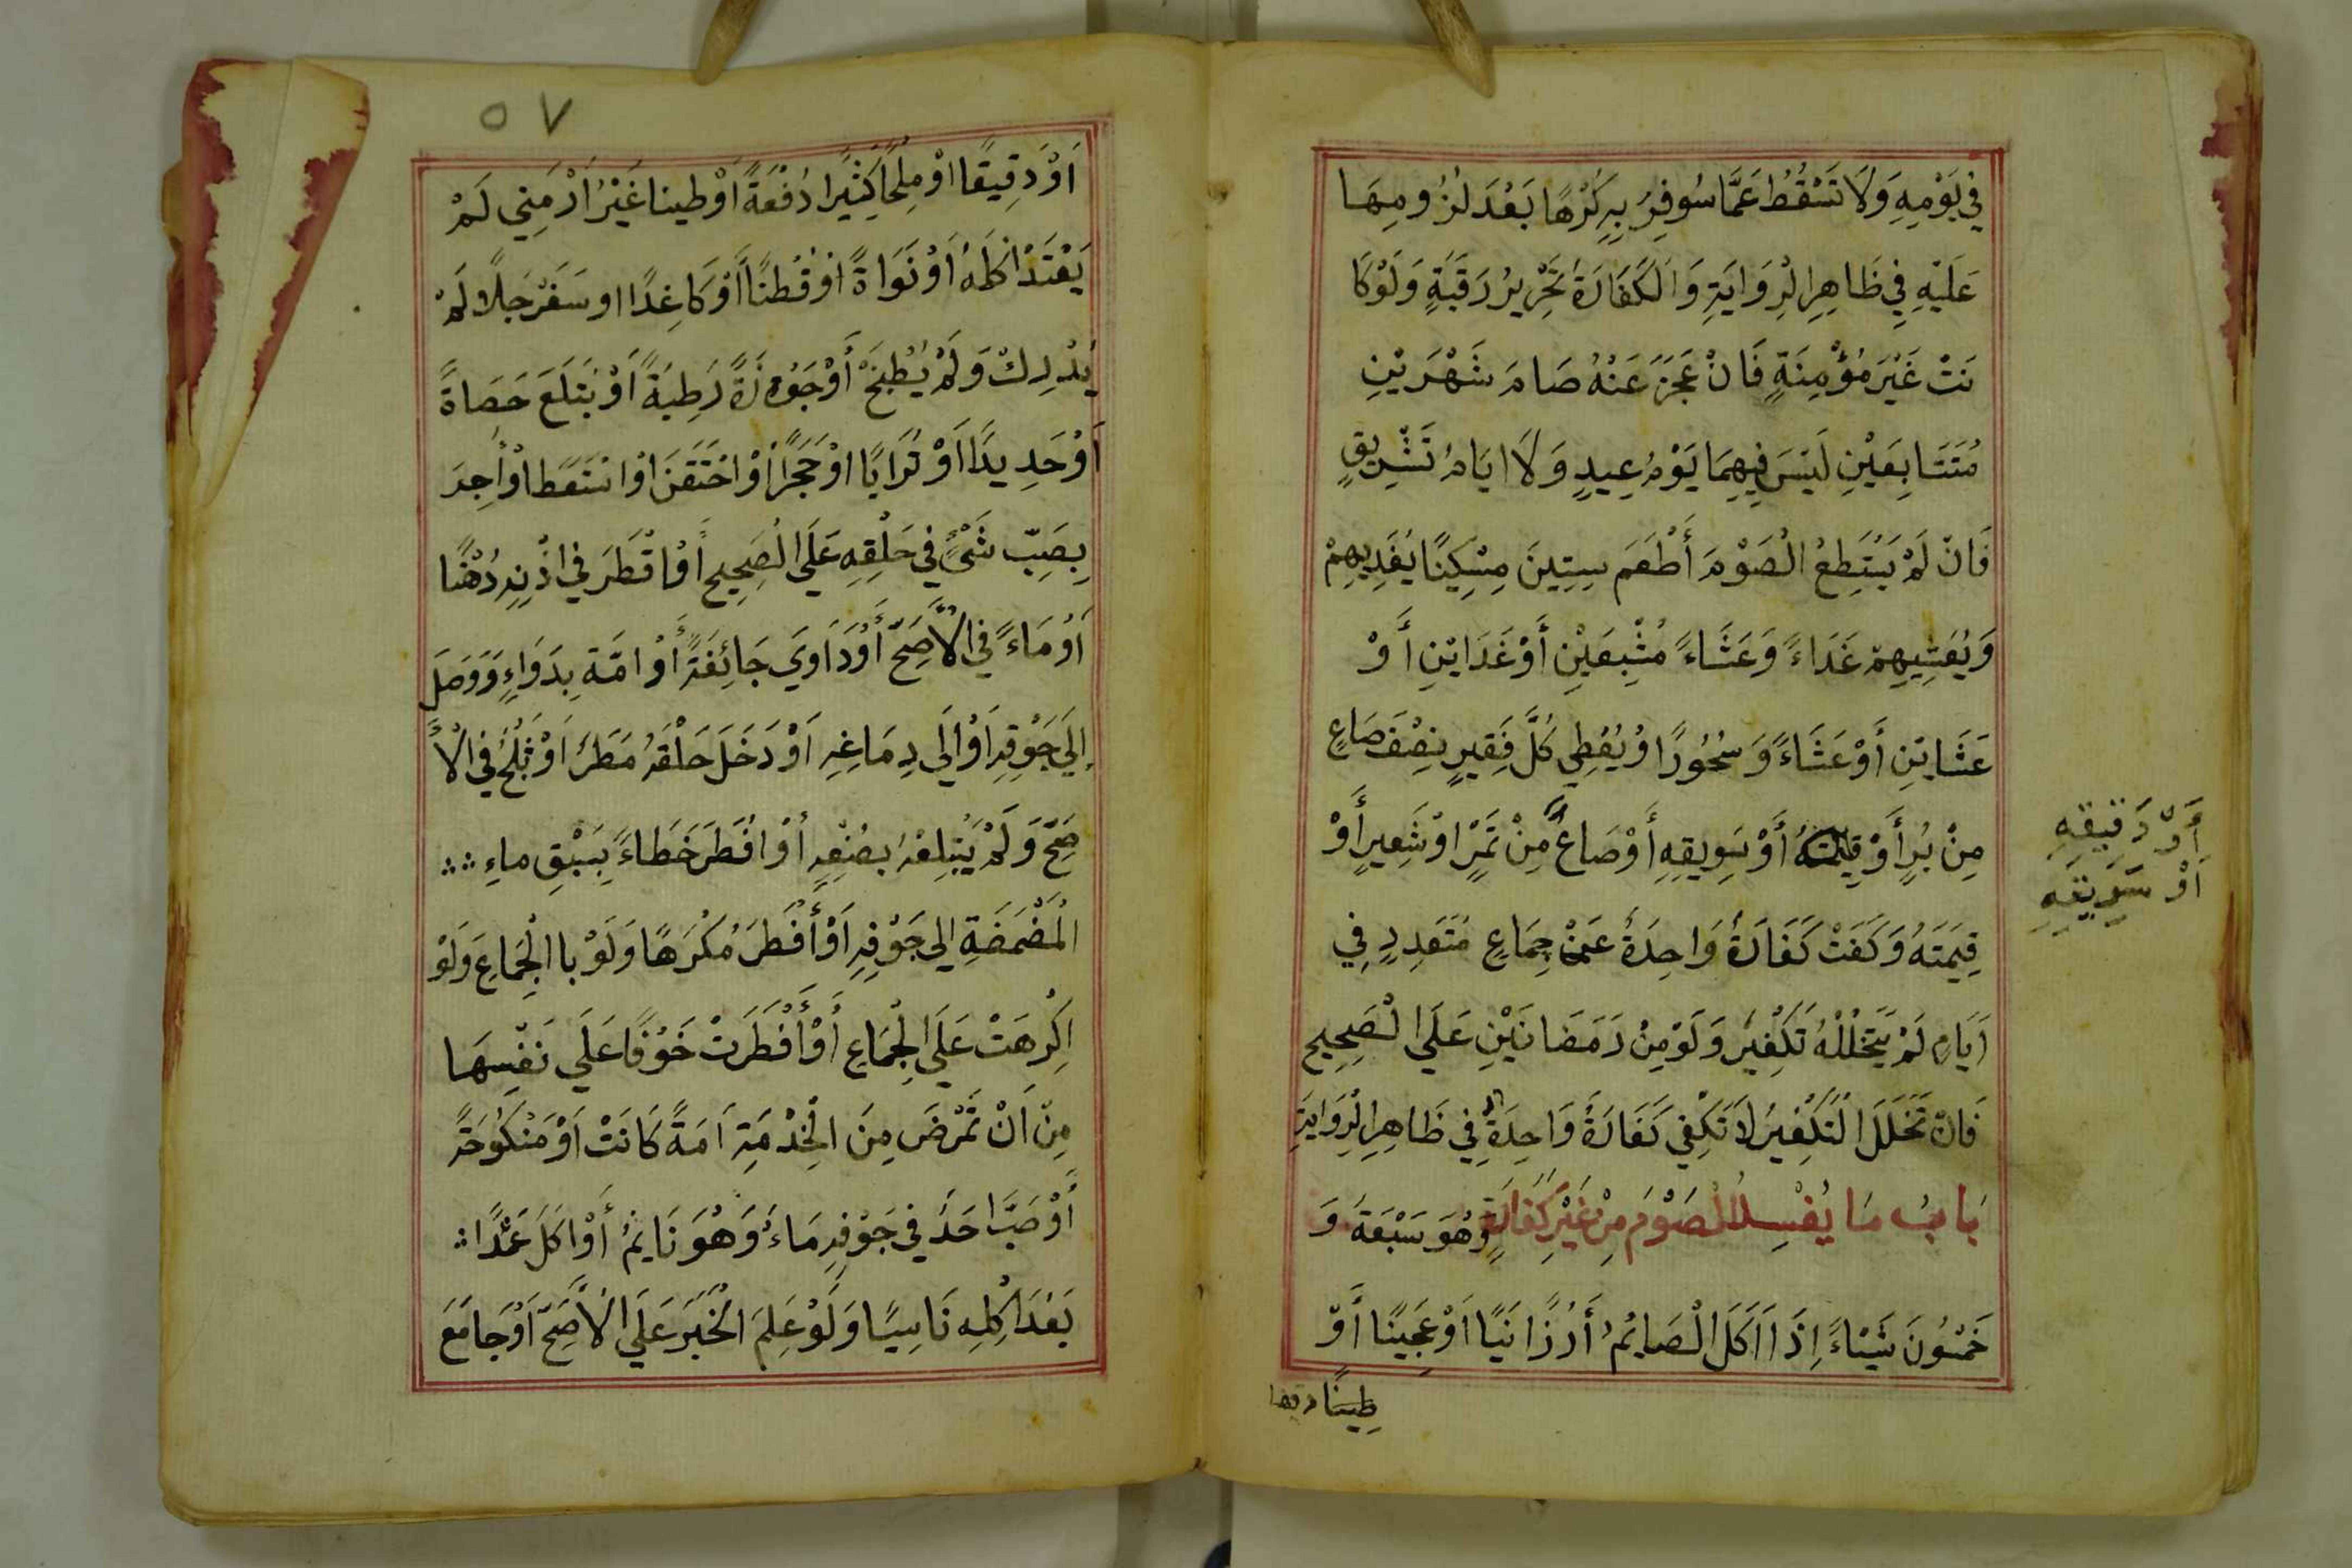 في يَوْمِهِ وَلَا تَسْقُطُ عَمَّا سُوفِرُ بِهِ كُرْهًا بَعْدَ لُزُومِهَا
عَلَيْهِ فِي ظَاهِرِ الرِّوَايَةِ وَالْكَفَارَةُ تَحْرِيرُ رَقَبَةٍ وَلَوْ كَا
نَتْ غَيْرَ مُؤْمِنَةٍ فَانْ عَجَزَ عَنْهُ صَامَ شَهْرَيْنِ
مُتَتَابِعَيْنِ لَيْسَ فِيهِمَا يَوْمُ عِيدٍ وَلَا ايَامُ تَشْرِيقٍ
فَانْ لَمْ يَسْتَطِعْ الْصَوْمَ أَطْعَمَ سِتِينَ مِسْكِينًا يُغَدِيهِمْ
وَيُعَشِيهِمْ غَدَاءً وَعَشَاءً مُشْبِعَيْنِ أَوْ غَدَايْنِ أَوْ
عَشَايْنِ أَوْ عَشَاءً وَسُحُورًا وْ يُعْطِي كُلَّ فَقِيرٍ نِصْفَ صَاعٍ
مِنْ بُرٍ أَوْ قِيمَتَهُ أَوْ سَوِيقِهِ أَوْ صَاعُ مِنْ تَمْرٍ اوْ شَعِيرٍ أَوْ
أَوْ دَقِيقِهِ
اَوْ سَوِيقِهِ
قِيمَتَهُ وَكَفَتْ كَفَارَةُ وَاحِدَةُ عَنْ جِمَاعٍ مُتَعَدِدٍ فِي
اَيَامٍ لَمْ يَتَخَلْلُهُ تَكْفِيرُ وَلَوْ مِنْ رَمَضَانَيْنِ عَلَى الْصَحِيحِ
فَانْ تَخَلَلَ الْتَكْفِيرُ لَا تَكْفِي كَفَارَةُ وَاحِدَةٌ فِي ظَاهِرِ الْرِوَايَةِ
بَابُ مَا يُفْسِدُ الْصَوْمَ مِنْ غَيْرِ كَفَارَةٍ وَهُوَ سَبْعَةُ وَ
خَمْسُونَ شَيْئاءً اِذَا اَكَلَ الْصَايُمُ أَرُزًا نَيًا اَوْ عَجِينًا أَوْ
طِينًا
٥٧
اَوْ دَقِيقًا اوْ مِلْحًا كَثِيرًا دُفْعَةً اَوْ طينا غَيْرُ اَرْمَنِي لَمْ
يَعْتَدْ اكْلَهُ اَوْ نَوَاةً اوْ قُطنًا أَوْ كَاغِدًا او سَفَرْجَلًا لَمْ
يُدْرِكْ وَلَمْ يُطْبَخْ أَوْ جَوْزَةً رَطِبَةً اَوْ بْتَلَعَ حَصَاةً
اَوْ حَدِيدًا اَوْ تُرَابًا اوْ حَجَرًا اَوْ احْتَقَنَ اوْ اسْتَعَطَ اوْ أُجِرَ
بِصَبِّ شَىٍْٔ فِي حَلْقِهِ عَلَى الْصَحِيحِ أَوْ اقْطَرَ في اذْنِهِ دُهْنًا
اَوْ مَاءً في الْاَصَحِّ أَوْ دَاوَي جَائِفَةً أَوْ امّةِ بِدَوَاءٍ وَوَصَلَ
اِلَي جَوْفِهِ اَوْ الَي دِمَاغِهِ اَوْ دَخَلَ حَلْقَهُ مَطَرُ اَوْ ثَلْجُ في الْاَ
صَحِّ وَلَمْ يَبْتِلِعْهُ بِصُنْعِهِ اَوْ افْطَرَ خَطَاءً بِسَبْقِ ماءِ
الْمَضْمَضَةِ الي جَوْفِهِ اَوْ أَفْطَرَ مُكْرَهًا وَلَوْ با الْجِمَاعِ وَلَوْ
اكْرِهَتْ عَلَى الْجِمَاعِ أَوْ أَفْطَرَتْ خَوْفًا عَلَي نَفْسِهَا
مِنْ اَنْ تَمْرَضَ مِنَ الْخِدْمَةِ اَمَةً كَانَتْ اَوْ مَنْكُوحَةً
أَوْ صَبَّ احَدُ في جَوْفِهِ مَاءً وَهُوَ نَايِمُ أَوْ اكَلَ عَمْدًا
بَعْدَ اَكْلِهِ نَاسِيًا وَلَوْ عَلِمَ الْخَبَرَ عَلَي الْاَصَحِّ اَوْ جَامَعَ